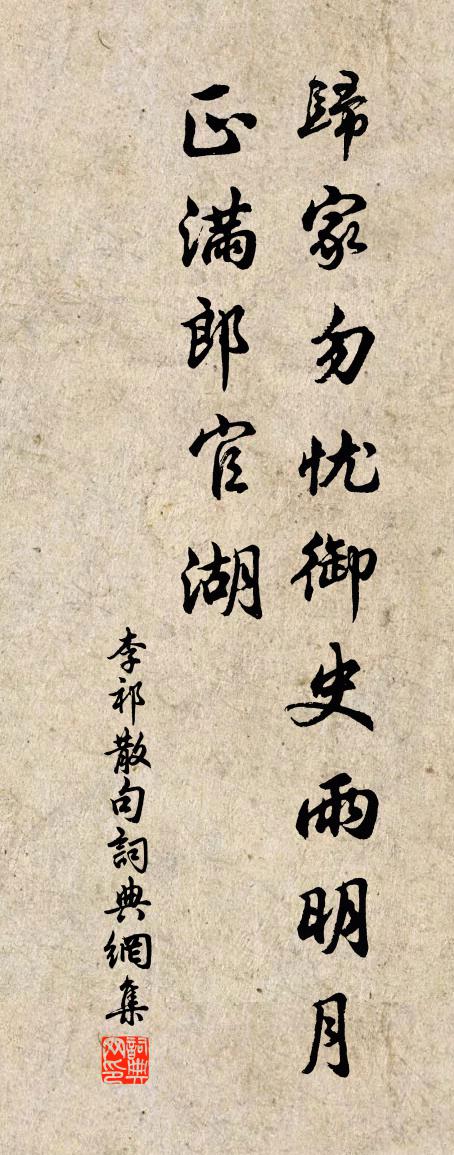 歸家勿忧御史雨明月
正滿郎官湖
李祁散句詞典網集
詞典网印